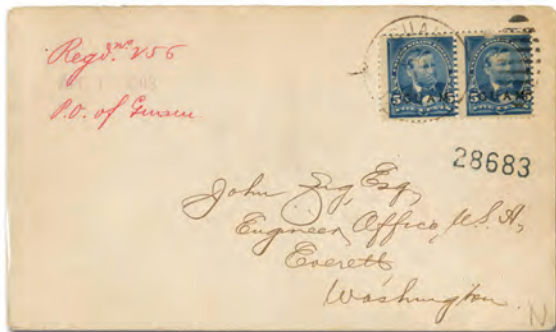 Regd. No. 256
P.O. of
GUAM
GUAM
28683
John Esq.
Engineer Office, U.S.A,
Everett
Washington.
N